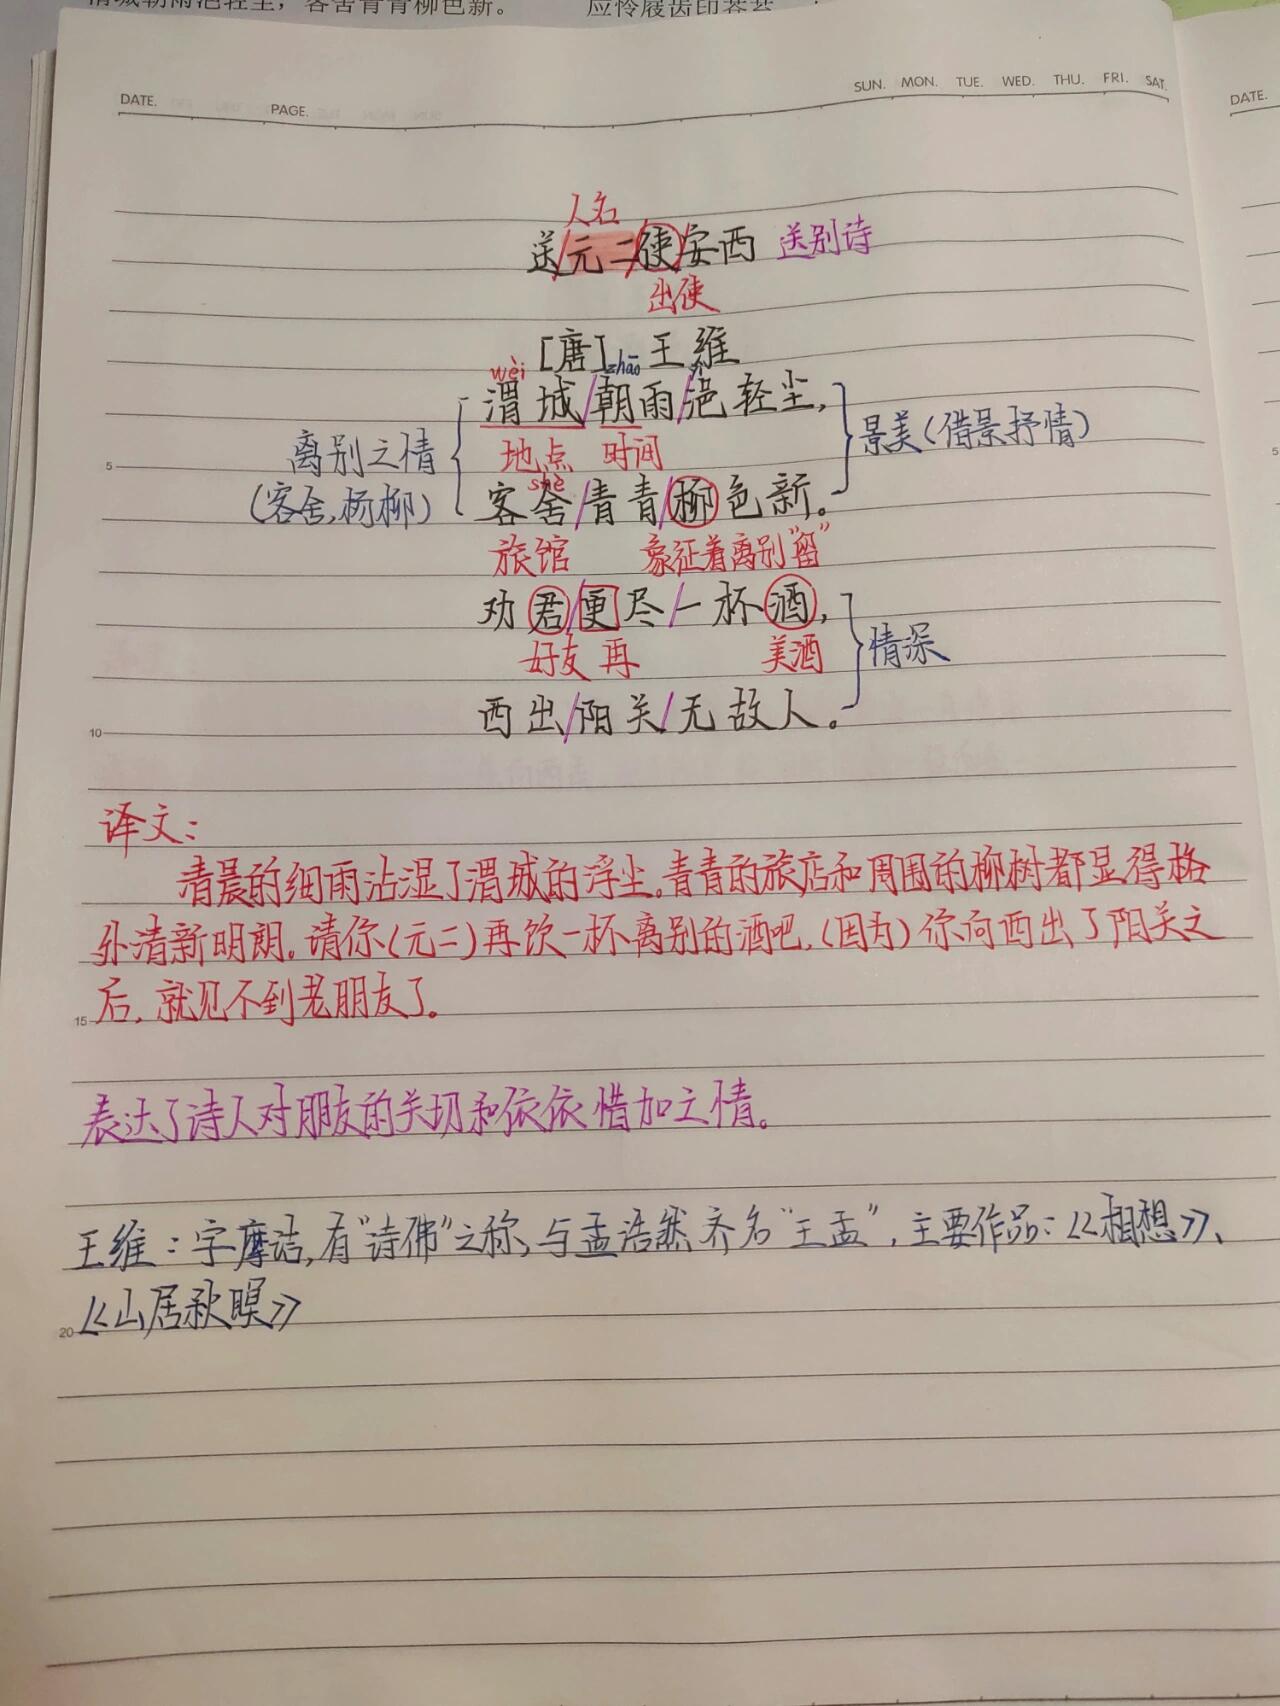 DATE. PAGE. SUN. MON. TUE. WED. THU. FRI. SAT.
DATE.
人名
送/元二/使/安西 送别诗
出使
[唐] 王维
wèi zhāo
渭城/朝雨/浥轻尘,
离别之情
地点 时间
景美(借景抒情)
(客舍,杨柳)
shè
5
5
客舍/青青/柳色新。
旅馆 象征着离别"留"
劝君/更尽/一杯酒,
好友 再 美酒
情深
西出/阳关/无故人。
10
译文:
清晨的细雨沾湿了渭城的浮尘。青青的旅店和周围的柳树都显得格
外清新明朗。请你(元二)再饮一杯离别的酒吧,(因为)你向西出了阳关之
后,就见不到老朋友了。
15
表达了诗人对朋友的关切和依依惜别之情。
王维:字摩诘,有"诗佛"之称,与孟浩然齐名"王孟",主要作品:《相想》、
《山居秋暝》
20